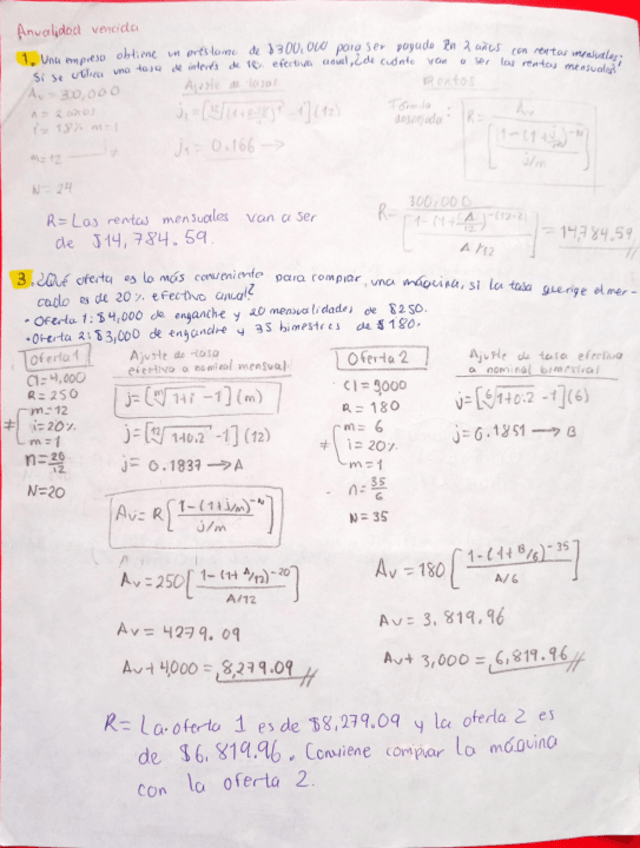 Anualidad vencida
1. Una empresa obtiene un préstamo de $300,000 para ser pagado en 2 años con rentas mensuales;
Si se utiliza una tasa de interés de 18% efectiva anual, ¿de cuánto van a ser las rentas mensuales?
Av = 300,000
n = 2 años
i = 18% m=1
m=12
N = 24
Ajuste de tasas
j₁ = 0.166 →
Montos
Fórmula
despejada:
R = Av / [(1-(1+j/m)^-N) / (j/m)]
R = 300,000 / [(1-(1+A/12)^-(12·2)) / (A/12)] = 14,784.59
R = Las rentas mensuales van a ser
de $14,784.59.
3. ¿Qué oferta es la más conveniente para comprar una máquina, si la tasa que rige el mer-
cado es de 20% efectivo anual?
• Oferta 1: $4,000 de enganche y 20 mensualidades de $250.
• Oferta 2: $3,000 de enganche y 35 bimestres de $180.
Oferta 1
CI = 4,000
R = 250
m = 12
≠ i = 20%
m = 1
n = 20/12
N = 20
Ajuste de tasa
efectiva a nominal mensual
j = [ᵐ√1+i - 1](m)
j = [¹²√1+0.2 - 1](12)
j = 0.1837 → A
Av = R [(1-(1+j/m)^-N) / (j/m)]
Av = 250 [(1-(1+A/12)^-20) / (A/12)]
Av = 4279.09
Av + 4,000 = 8,279.09
Oferta 2
R = 180
m = 6
≠ i = 20%
m = 1
n = 35/6
N = 35
Ajuste de tasa efectiva
a nominal bimestral
j = [⁶√1+0.2 - 1](6)
j = 0.1851 → B
Av = 180 [(1-(1+B/6)^-35) / (A/6)]
Av = 3,819.96
Av + 3,000 = 6,819.96
R = La oferta 1 es de $8,279.09 y la oferta 2 es
de $6,819.96. Conviene comprar la máquina
con la oferta 2.